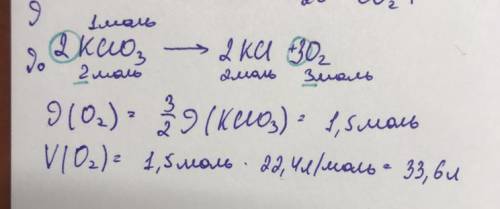 ϑ 1моль
ϑ₀ 2KClO₃ → 2KCl +3O₂
2моль 2моль 3моль
ϑ(O₂) = 3/2 ϑ(KClO₃) = 1,5моль
V(O₂) = 1,5моль · 22,4л/моль = 33,6л